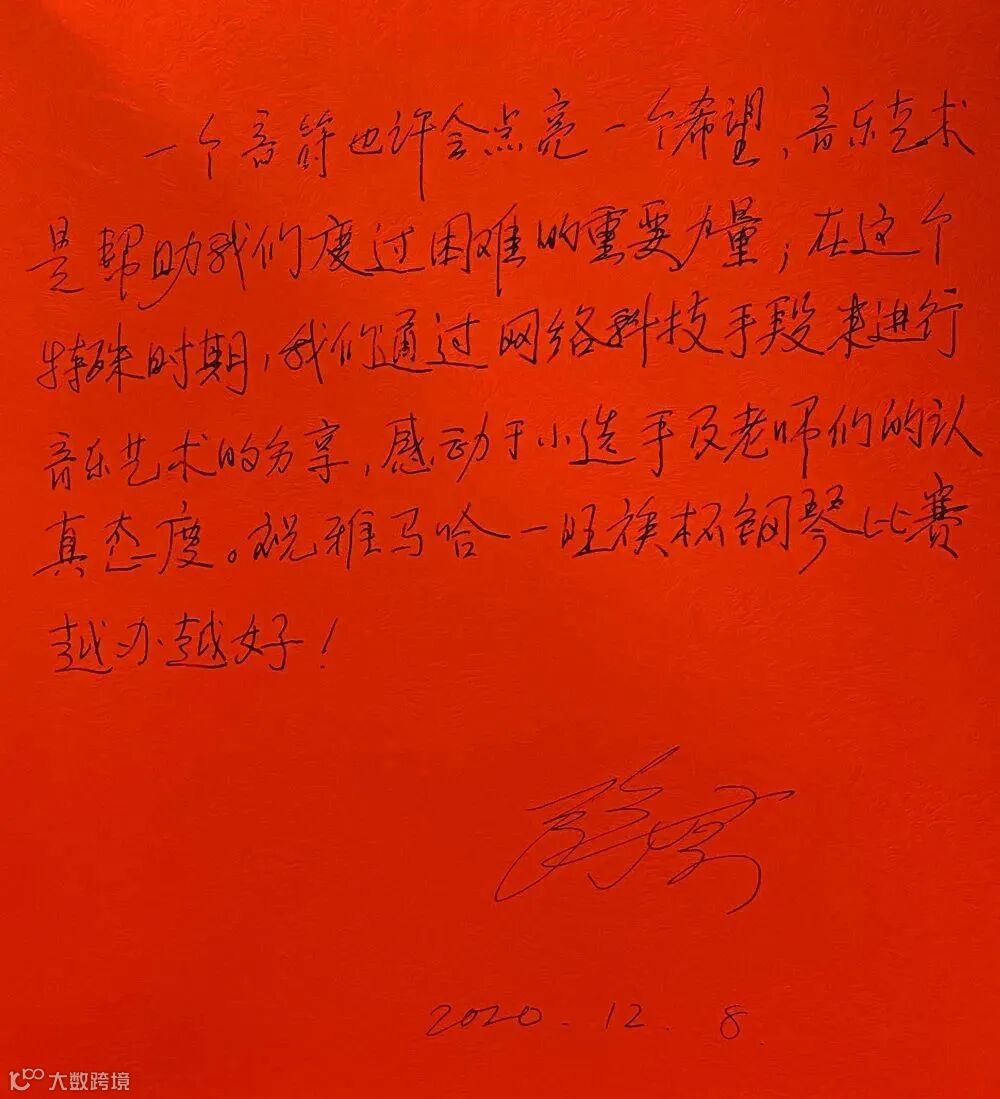 一个音符也许会点亮一个希望，音乐艺术
是帮助我们度过困难的重要力量；在这个
特殊时期，我们通过网络科技手段来进行
音乐艺术的分享，感动于小选手及老师们的认
真态度。祝雅马哈一旺族杯钢琴比赛
越办越好！
2020.12.8
大数跨境